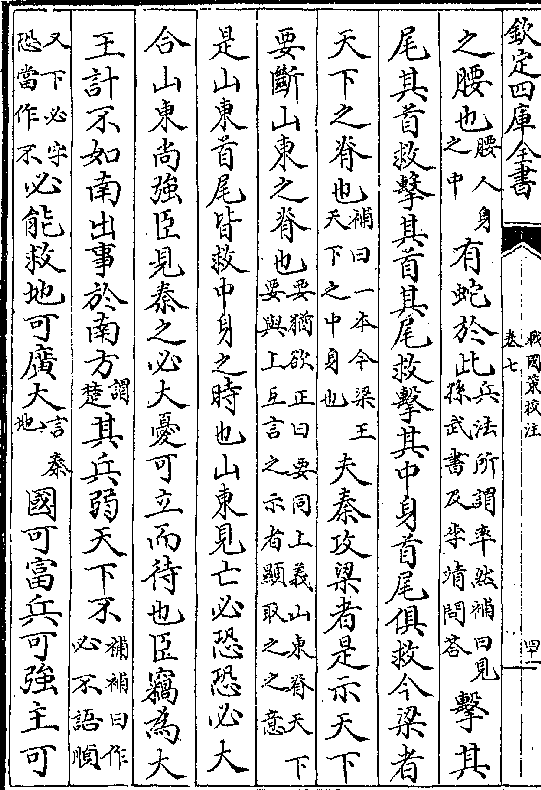 欽定四庫全書
戰國策校注
卷七
四一
之腰也腰人身之中有蛇於此兵法所謂率然補曰見孫武書及李靖問答擊其
尾其首救擊其首其尾救擊其中身首尾俱救今梁者
天下之脊也補曰一本今梁王天下之中身也夫秦攻梁者是示天下
要斷山東之脊也要猶欲正曰要同上義山東脊天下要與上互言之示者顯取之之意
是山東首尾皆救中身之時也山東見亡必恐恐必大
合山東尚強臣見秦之必大憂可立而待也臣竊為大
王計不如南出事於南方謂楚其兵弱天下不補補曰作必不語順
又下必字恐當作不必能救地可廣大言秦地國可富兵可強主可